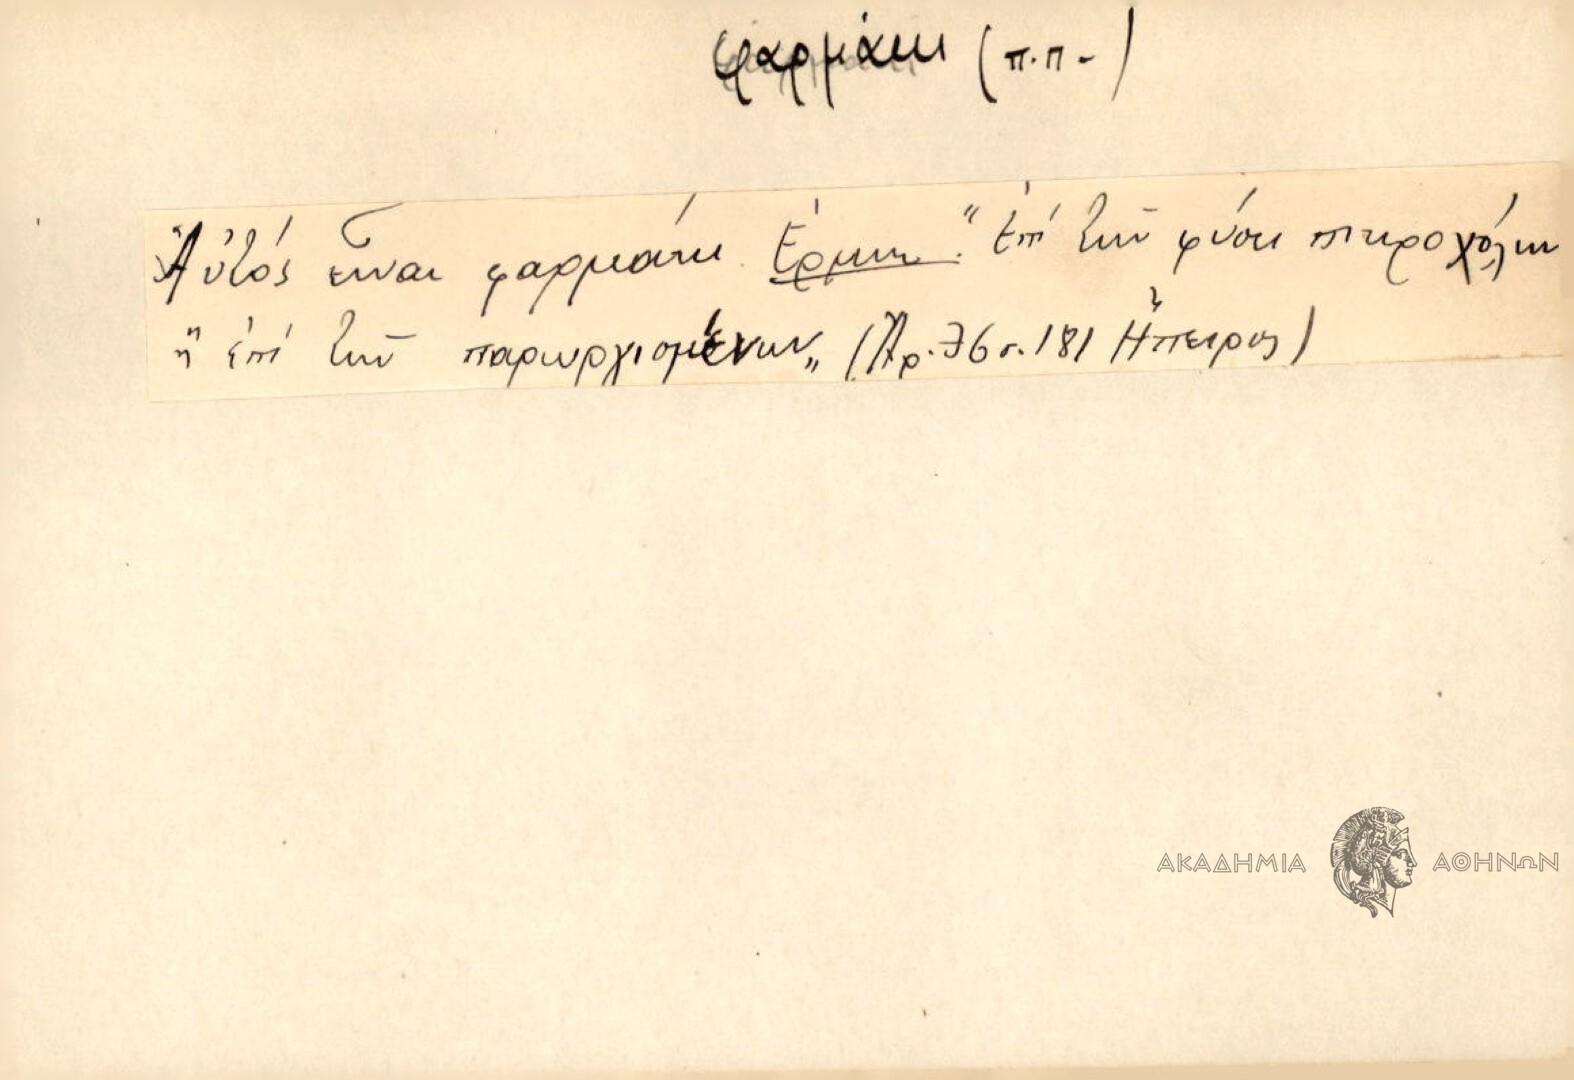 φαρμάκι (π.π.)
"Αὐτός εἶναι φαρμάκι. Ἑρμην. "ἐπί τῶν φύσει πικροχόλων
ἤ ἐπί τῶν παρωργισμένων" (Ἀρ. 76 σ. 181 Ἤπειρος)
ΑΚΑΔΗΜΙΑ ΑΘΗΝΩΝ